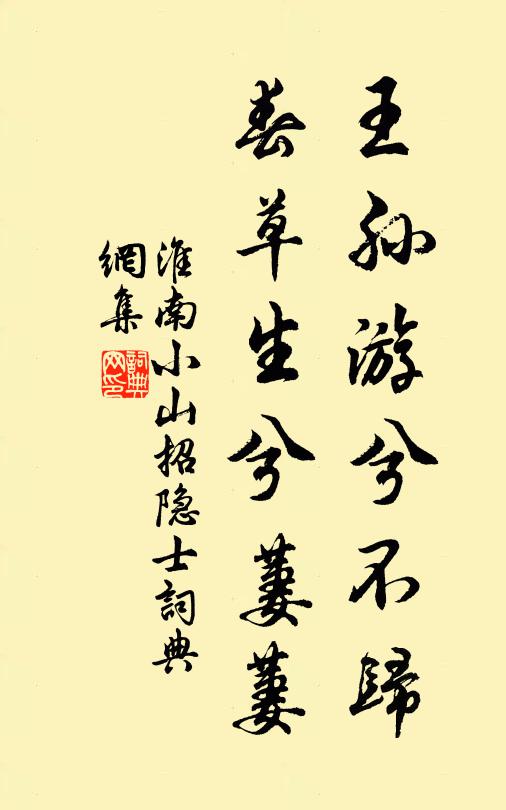 王孙游兮不歸
春草生兮萋萋
淮南小山招隐士詞典
網集
詞典
网印